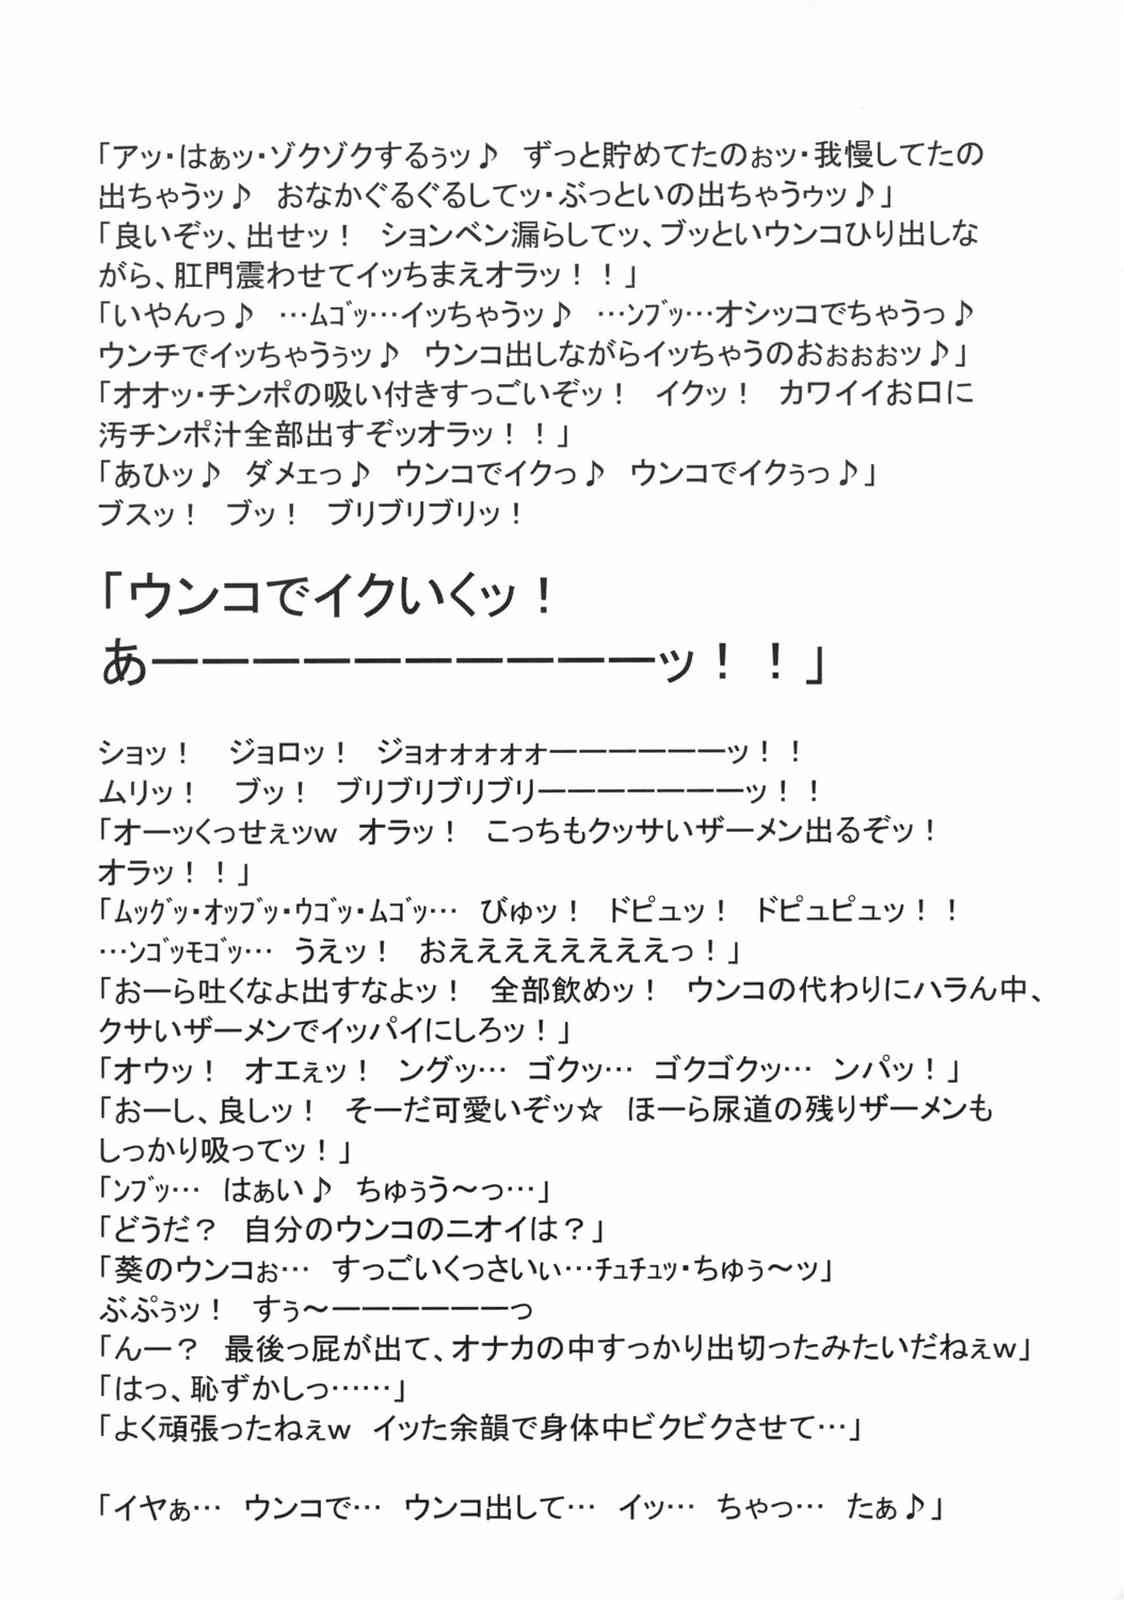 「アッ・はぁッ・ゾクゾクするぅッ♪　ずっと貯めてたのぉッ・我慢してたの
出ちゃうッ♪　おなかぐるぐるしてッ・ぶっといの出ちゃうゥッ♪」
「良いぞッ、出せッ！　ションベン漏らしてッ、ブッといウンコひり出しな
がら、肛門震わせてイッちまえオラッ！！」
「いやんっ♪　…ﾑｺﾞｯ…イッちゃうッ♪　…ﾝﾌﾞｯ…オシッコでちゃうっ♪
ウンチでイッちゃうぅッ♪　ウンコ出しながらイッちゃうのおぉぉぉッ♪」
「オオッ・チンポの吸い付きすっごいぞッ！　イクッ！　カワイイお口に
汚チンポ汁全部出すぞッオラッ！！」
「あひッ♪　ダメェっ♪　ウンコでイクっ♪　ウンコでイクぅっ♪」
ブスッ！　ブッ！　ブリブリブリッ！
「ウンコでイクいくッ！
あーーーーーーーーーーーッ！！」
ショッ！　ジョロッ！　ジョォォォォォーーーーーーッ！！
ムリッ！　ブッ！　ブリブリブリブリーーーーーーーッ！！
「オーッくっせぇッｗ　オラッ！　こっちもクッサいザーメン出るぞッ！
オラッ！！」
「ﾑｯｸﾞｯ・ｵｯﾌﾞｯ・ｳｺﾞｯ・ﾑｺﾞｯ…　びゅッ！　ドピュッ！　ドピュピュッ！！
…ﾝｺﾞｯﾓｺﾞｯ…　うえッ！　おええええええええっ！」
「おーら吐くなよ出すなよッ！　全部飲めッ！　ウンコの代わりにハラん中、
クサいザーメンでイッパイにしろッ！」
「オウッ！　オエェッ！　ングッ…　ゴクッ…　ゴクゴクッ…　ンパッ！」
「おーし、良しッ！　そーだ可愛いぞッ☆　ほーら尿道の残りザーメンも
しっかり吸ってッ！」
「ﾝﾌﾞｯ…　はぁい♪　ちゅぅう～っ…」
「どうだ？　自分のウンコのニオイは？」
「葵のウンコぉ…　すっごいくっさいぃ…ﾁｭﾁｭｯ・ちゅぅ～ッ」
ぶぷぅッ！　すぅ～ーーーーーーっ
「んー？　最後っ屁が出て、オナカの中すっかり出切ったみたいだねぇｗ」
「はっ、恥ずかしっ……」
「よく頑張ったねぇｗ　イッた余韻で身体中ビクビクさせて…」
「イヤぁ…　ウンコで…　ウンコ出して…　イッ…　ちゃっ…　たぁ♪」